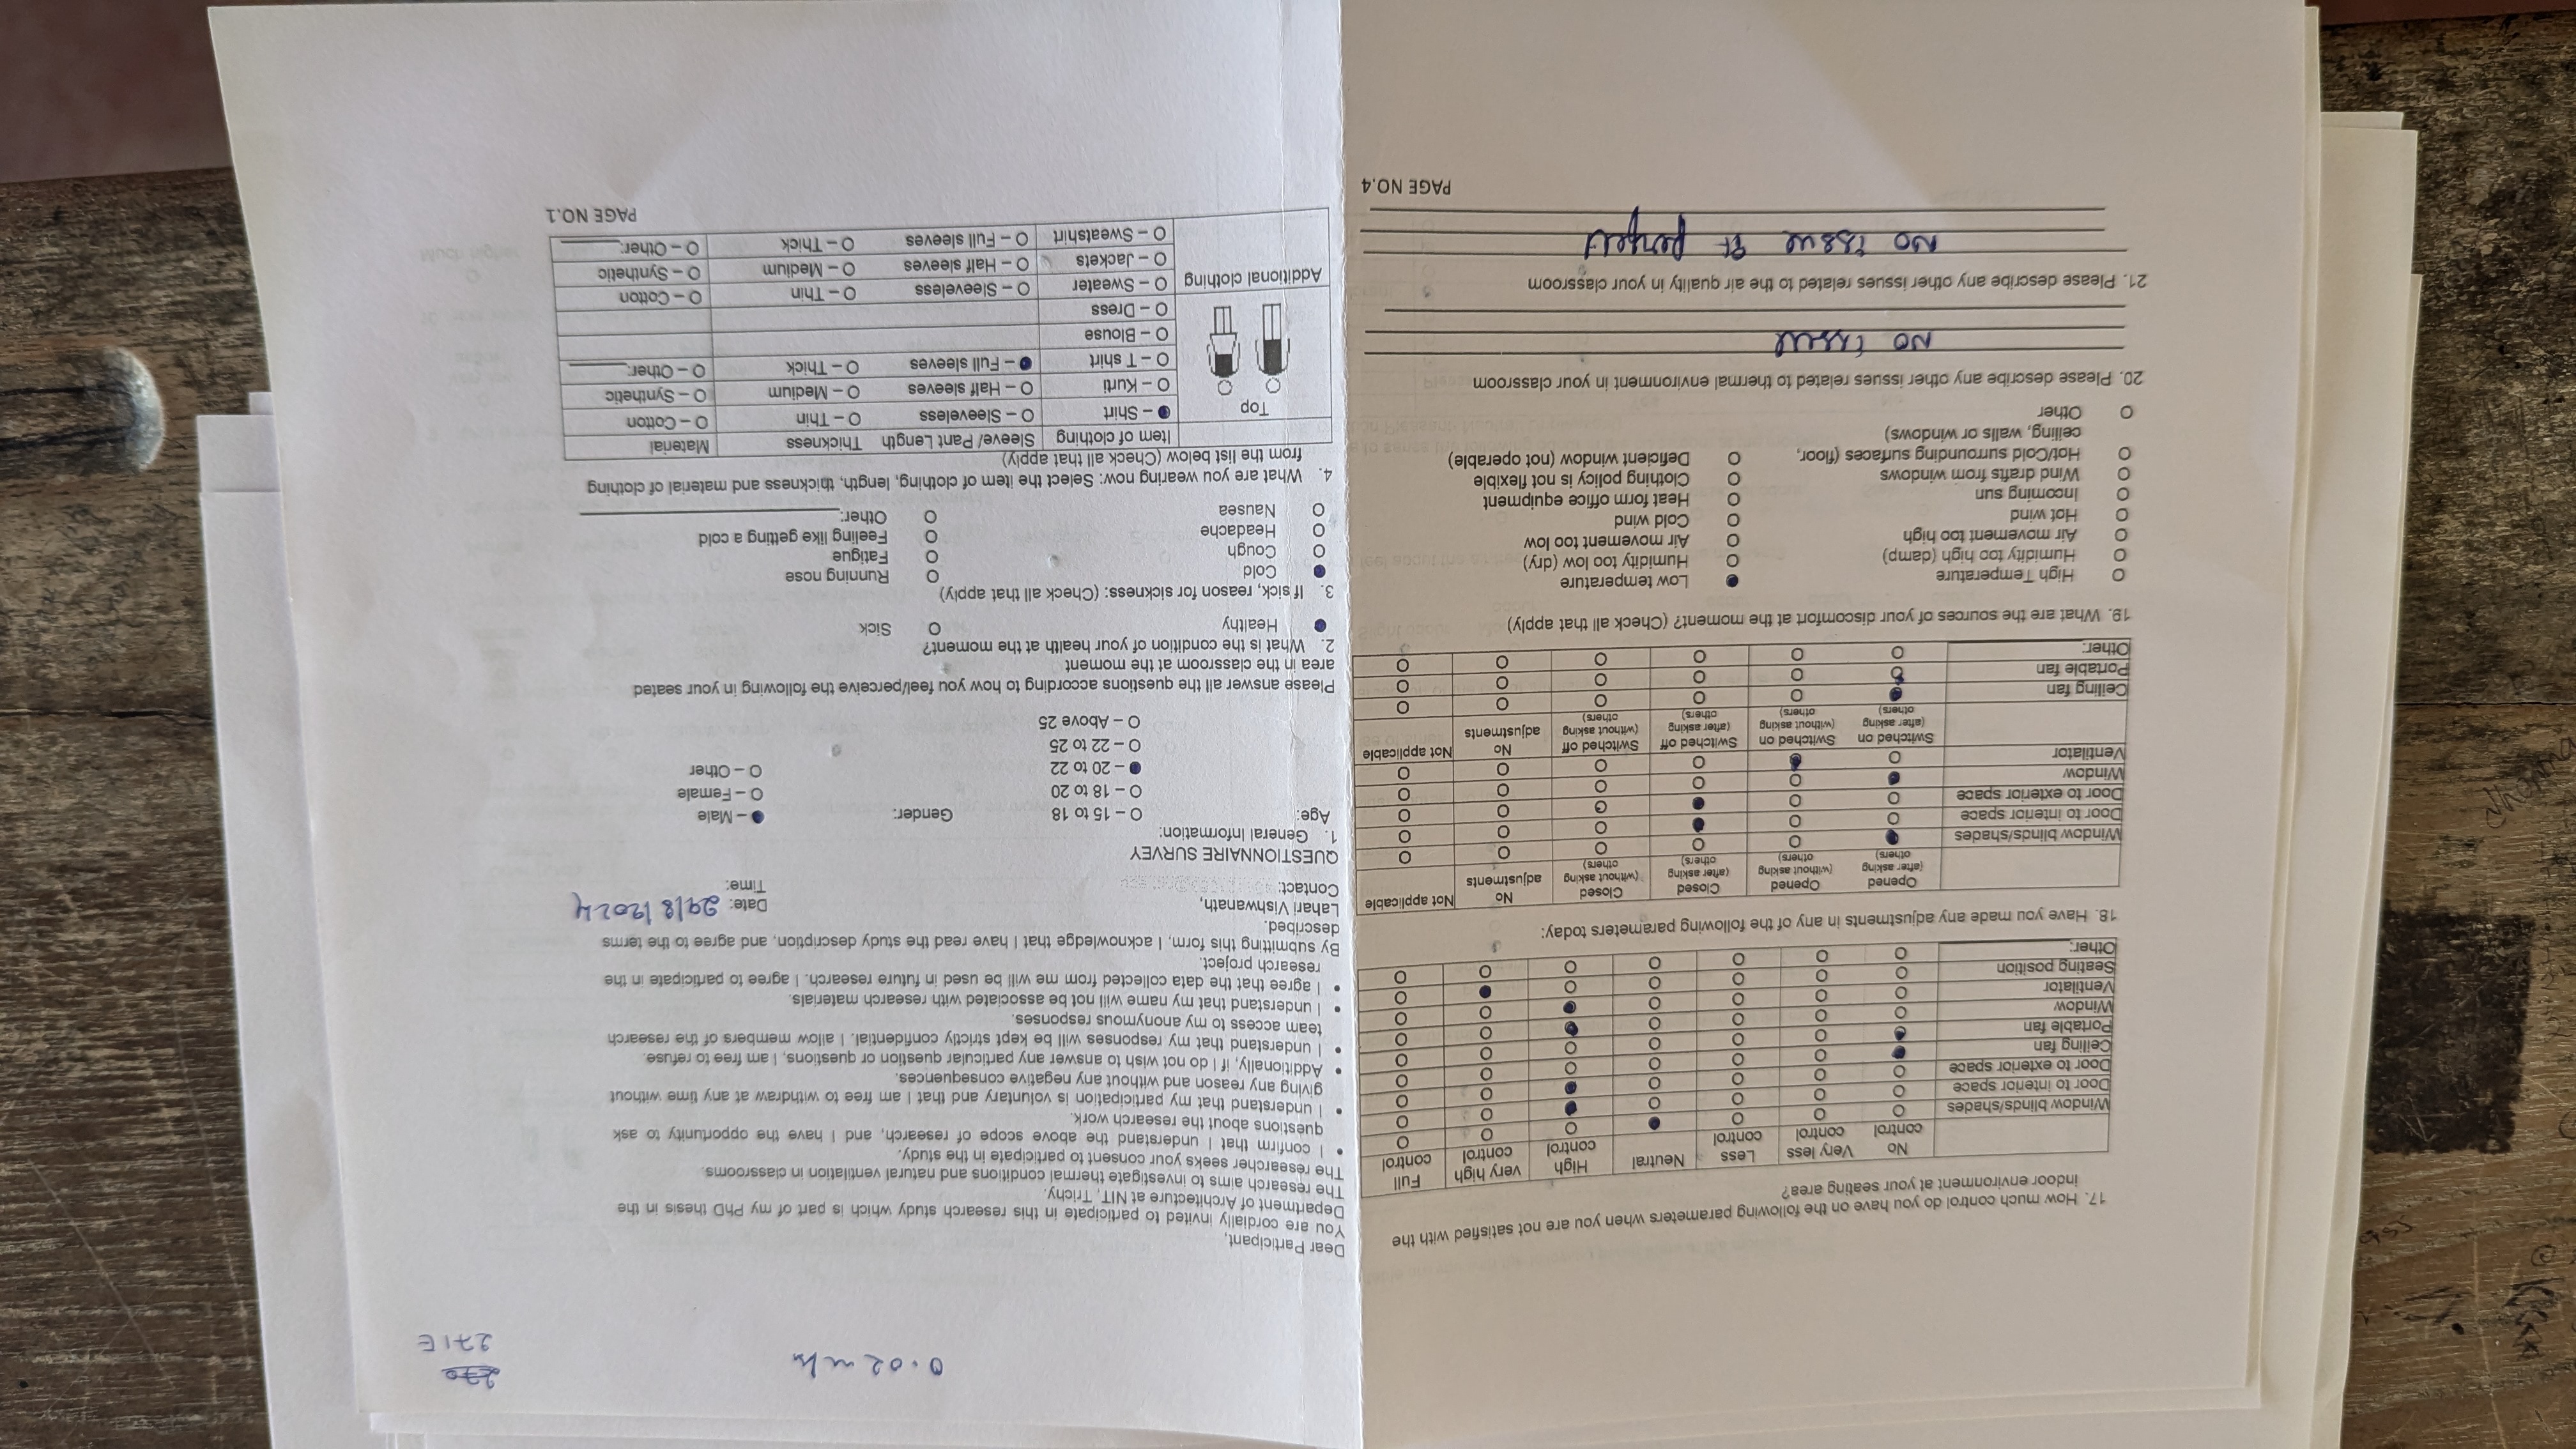 17. How much control do you have on the following parameters when you are not satisfied with the
indoor environment at your seating area?
No control Very less control Less control Neutral High control very high control Full control
Window blinds/shades O O O ● O O O
Door to interior space O O O O ● O O
Door to exterior space O O O O ● O O
Ceiling fan ● O O O O O O
Portable fan ● O O O O O O
Window O O O O ● O O
Ventilator O O O O ● O O
Seating position O O O O O ● O
Other:______ O O O O O O O
18. Have you made any adjustments in any of the following parameters today:
Opened (after asking others) Opened (without asking others) Closed (after asking others) Closed (without asking others) No adjustments Not applicable
Window blinds/shades ● O O O O O
Door to interior space O O ● O O O
Door to exterior space O O ● O O O
Window ● O O O O O
Ventilator O ● O O O O
Switched on (after asking others) Switched on (without asking others) Switched off (after asking others) Switched off (without asking others) No adjustments Not applicable
Ceiling fan ● O O O O O
Portable fan ● O O O O O
Other:______ O O O O O O
19. What are the sources of your discomfort at the moment? (Check all that apply)
O High Temperature ● Low temperature
O Humidity too high (damp) O Humidity too low (dry)
O Air movement too high O Air movement too low
O Hot wind O Cold wind
O Incoming sun O Heat form office equipment
O Wind drafts from windows O Clothing policy is not flexible
O Hot/Cold surrounding surfaces (floor, O Deficient window (not operable)
ceiling, walls or windows)
O Other
20. Please describe any other issues related to thermal environment in your classroom
NO issue
21. Please describe any other issues related to the air quality in your classroom
NO issue It perfect
PAGE NO.4
0.02 m/s
270
271E
Dear Participant,
You are cordially invited to participate in this research study which is part of my PhD thesis in the
Department of Architecture at NIT, Trichy.
The research aims to investigate thermal conditions and natural ventilation in classrooms.
The researcher seeks your consent to participate in the study.
• I confirm that I understand the above scope of research, and I have the opportunity to ask
questions about the research work.
• I understand that my participation is voluntary and that I am free to withdraw at any time without
giving any reason and without any negative consequences.
• Additionally, if I do not wish to answer any particular question or questions, I am free to refuse.
• I understand that my responses will be kept strictly confidential. I allow members of the research
team access to my anonymous responses.
• I understand that my name will not be associated with research materials.
• I agree that the data collected from me will be used in future research. I agree to participate in the
research project.
By submitting this form, I acknowledge that I have read the study description, and agree to the terms
described.
Lahari Vishwanath,
Contact:
Date: 29/8/2024
Time:
QUESTIONNAIRE SURVEY
1. General Information:
Age: O – 15 to 18 Gender: ● – Male
O – 18 to 20 O – Female
● – 20 to 22 O – Other
O – 22 to 25
O – Above 25
Please answer all the questions according to how you feel/perceive the following in your seated
area in the classroom at the moment
2. What is the condition of your health at the moment?
● Healthy O Sick
3. If sick, reason for sickness: (Check all that apply)
● Cold O Running nose
O Cough O Fatigue
O Headache O Feeling like getting a cold
O Nausea O Other:______
4. What are you wearing now: Select the item of clothing, length, thickness and material of clothing
from the list below (Check all that apply)
Item of clothing Sleeve/ Pant Length Thickness Material
Top ● – Shirt O – Sleeveless O – Thin O – Cotton
O – Kurti O – Half sleeves O – Medium O – Synthetic
O – T shirt ● – Full sleeves O – Thick O – Other:______
O – Blouse
O – Dress
Additional clothing O – Sweater O – Sleeveless O – Thin O – Cotton
O – Jackets O – Half sleeves O – Medium O – Synthetic
O – Sweatshirt O – Full sleeves O – Thick O – Other:______
PAGE NO.1